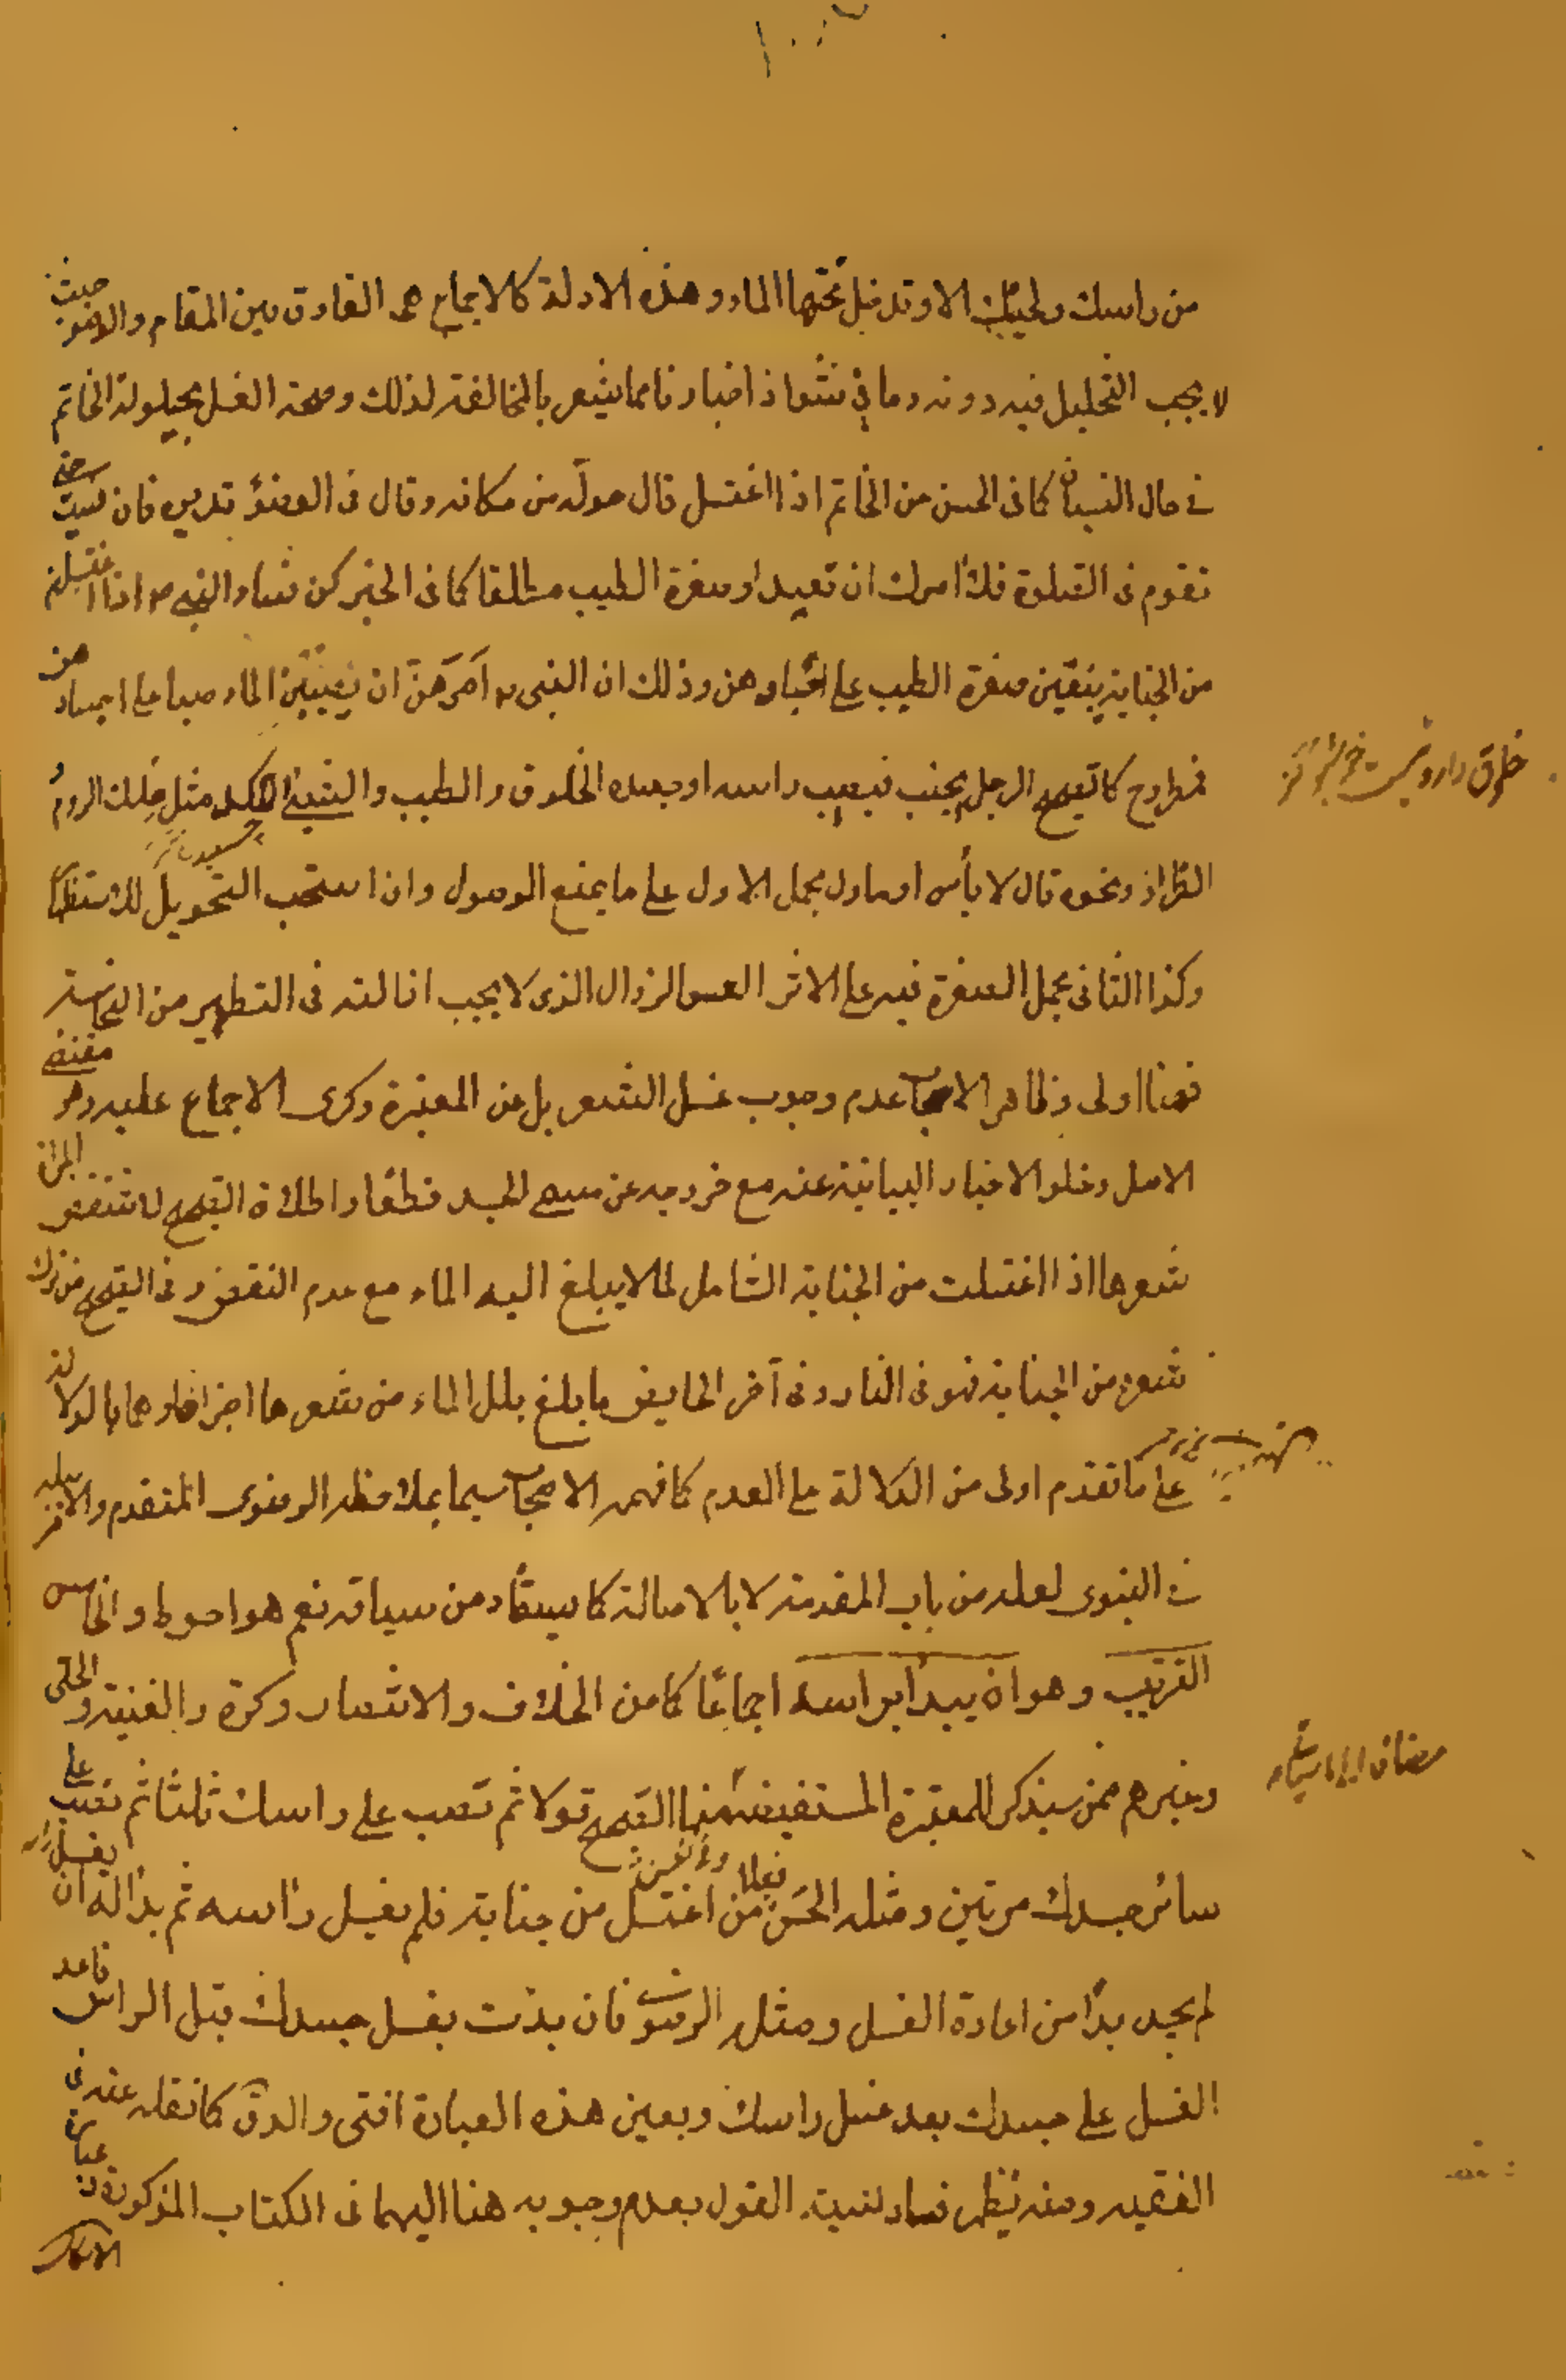 من راسك ولحيتك الا وتدخل تحتها الماء وهذه الادلة كالاجماع هى الفارق بين المقام والوضوء حيث
لا يجب التخليل فيه دونه وما فى شواذ اخبارنا مما يشعر بالمخالفة لذلك وصحة الغسل بحيلولة الخاتم
فى حال النسيان كما فى الحسن من الخاتم اذا اغتسل قال حوله من مكانه وقال فى الوضوء تديره فان نسيت حتى
تقوم فى الصلوة فلا امرك ان تعيد او صفرة الطيب مطلقا كما فى الخبر كن نساء النبى ص اذا اغتسلن
من الجنابة يبقين صفرة الطيب على اجسادهن وذلك ان النبى ص امرهن ان يصببن الماء صبا على اجسادهن
فمطروح كالصحيح الرجل يجنب فيصيب راسه او جسده الخلوق والطيب والشىء اللكد مثل علك الروم
خلوق داروئيست
الطراز ونحوه قال لا بأس او ماول بحمل الاول على ما يمنع الوصول وان استحب التحويل للاستظهار
وكذا الثانى بحمل الصفرة فيه على الاثر العسر الزوال الذى لا يجب ازالته فى التطهير من النجاسة
فهنا اولى وظاهر الاصحاب عدم وجوب غسل الشعر بل عن المعتبر وكرى الاجماع عليه وهو مقتضى
الاصل وخلو الاخبار البيانية عنه مع خروجه عن مسمى الجسد قطعا واطلاق الصحيح لا تنقض المراة
شعرها اذا اغتسلت من الجنابة الشامل لما لا يبلغ اليه الماء مع عدم النقض وفى الصحيح من ترك
شعرة من الجنابة فهو فى النار وفى آخر الحايض ما بلغ بلل الماء من شعرها اجزاها وهما بالدلالة
على ما تقدم اولى من الدلالة على العدم كما فهمه الاصحاب سيما بملاحظة الرضوى المتقدم والامر ببله
فى النبوى لعله من باب المقدمة لا بالاصالة كما يستفاد من سياقه نعم هو احوط والخامس
الترتيب وهو ان يبدا براسه اجماعا كما من الخلاف والانتصار وكرة والغنية والحلى
وغيرهم ممن سيذكر للمعتبرة المستفيضة منها الصحيح قولا ثم تصب على راسك ثلثا ثم تصب على
سائر جسدك مرتين ومثله الحسن من اغتسل من جنابة فلم يغسل راسه ثم بدا له ان يغسل راسه
لم يجد بدا من اعادة الغسل ومثله الرضوى فان بدئت بغسل جسدك قبل الراس فاعد
الغسل على جسدك بعد غسل راسك وبعين هذه العبارة افتى والد ق كما نقله عنه فى
الفقيه ومنه يظهر فساد نسبة القول بعدم وجوبه هنا اليهما فى الكتاب المذكور